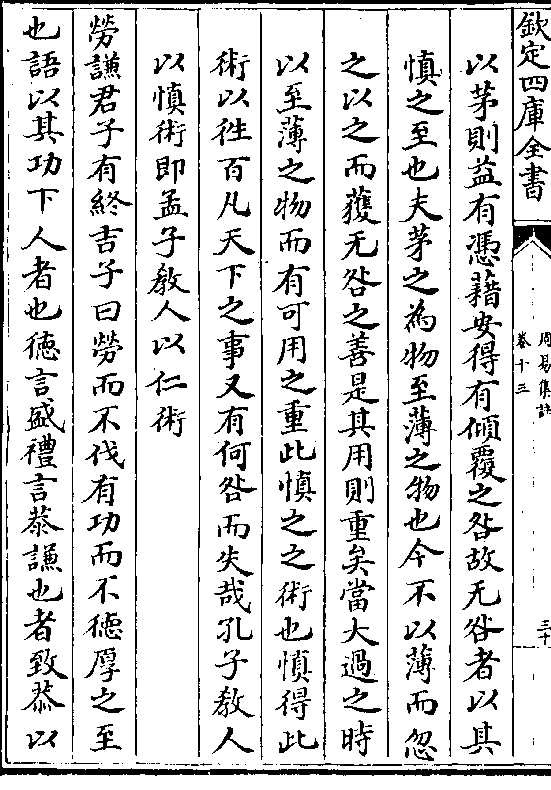 欽定四庫全書
周易集註
卷十三
三十
以茅則益有憑藉安得有傾覆之咎故无咎者以其
慎之至也夫茅之為物至薄之物也今不以薄而忽
之以之而獲无咎之善是其用則重矣當大過之時
以至薄之物而有可用之重此慎之之術也慎得此
術以徃百凡天下之事又有何咎而失哉孔子教人
以慎術即孟子教人以仁術
勞謙君子有終吉子曰勞而不伐有功而不德厚之至
也語以其功下人者也德言盛禮言恭謙也者致恭以